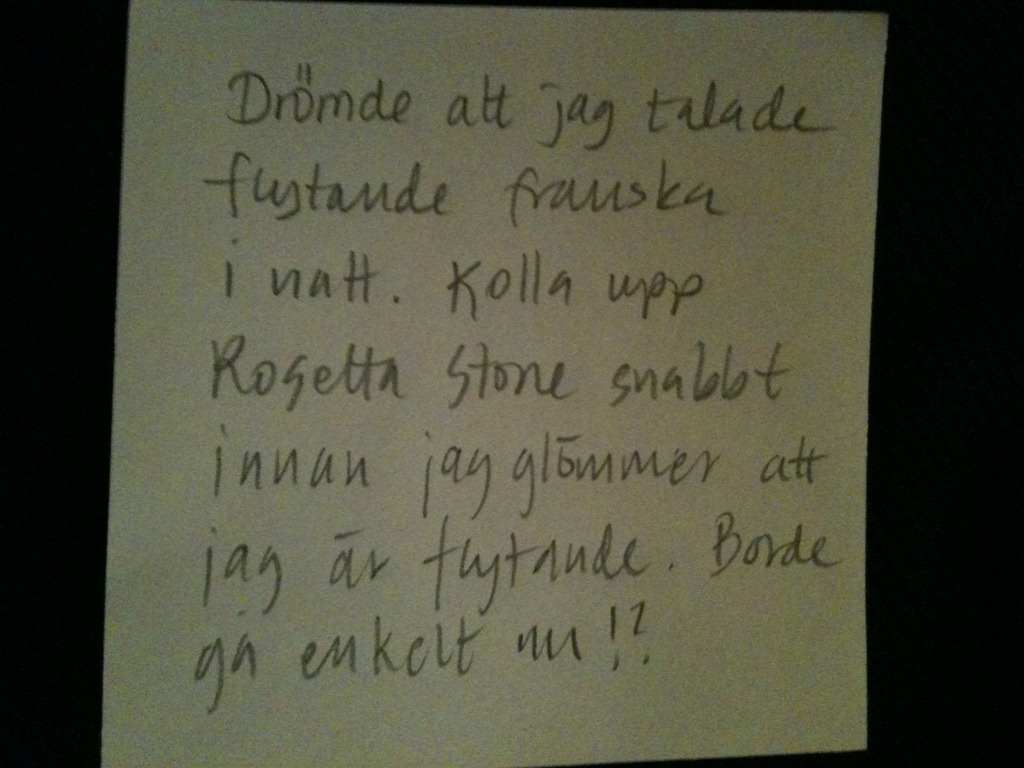 Drömde att jag talade
flytande franska
i natt. Kolla upp
Rosetta Stone snabbt
innan jag glömmer att
jag är flytande. Borde
gå enkelt nu!?